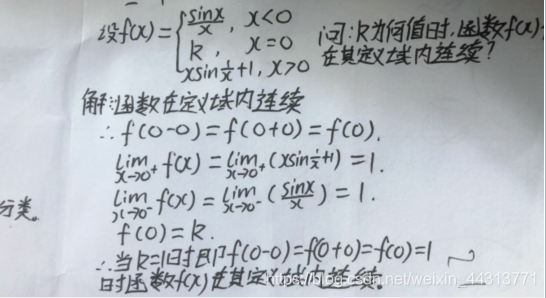 设f(x)={ sinx/x, x<0
k, x=0
xsin1/x+1, x>0
问:k为何值时,函数f(x)
在其定义域内连续?
解:函数在定义域内连续
∴f(0-0)=f(0+0)=f(0).
lim x→0⁺ f(x)=lim x→0⁺(xsin1/x+1)=1.
分类。
lim x→0⁻ f(x)=lim x→0⁻(sinx/x)=1.
f(0)=k.
∴当k=1时即f(0-0)=f(0+0)=f(0)=1
时函数f(x)在其定义域内连续.
https://blog.csdn.net/weixin_44313771